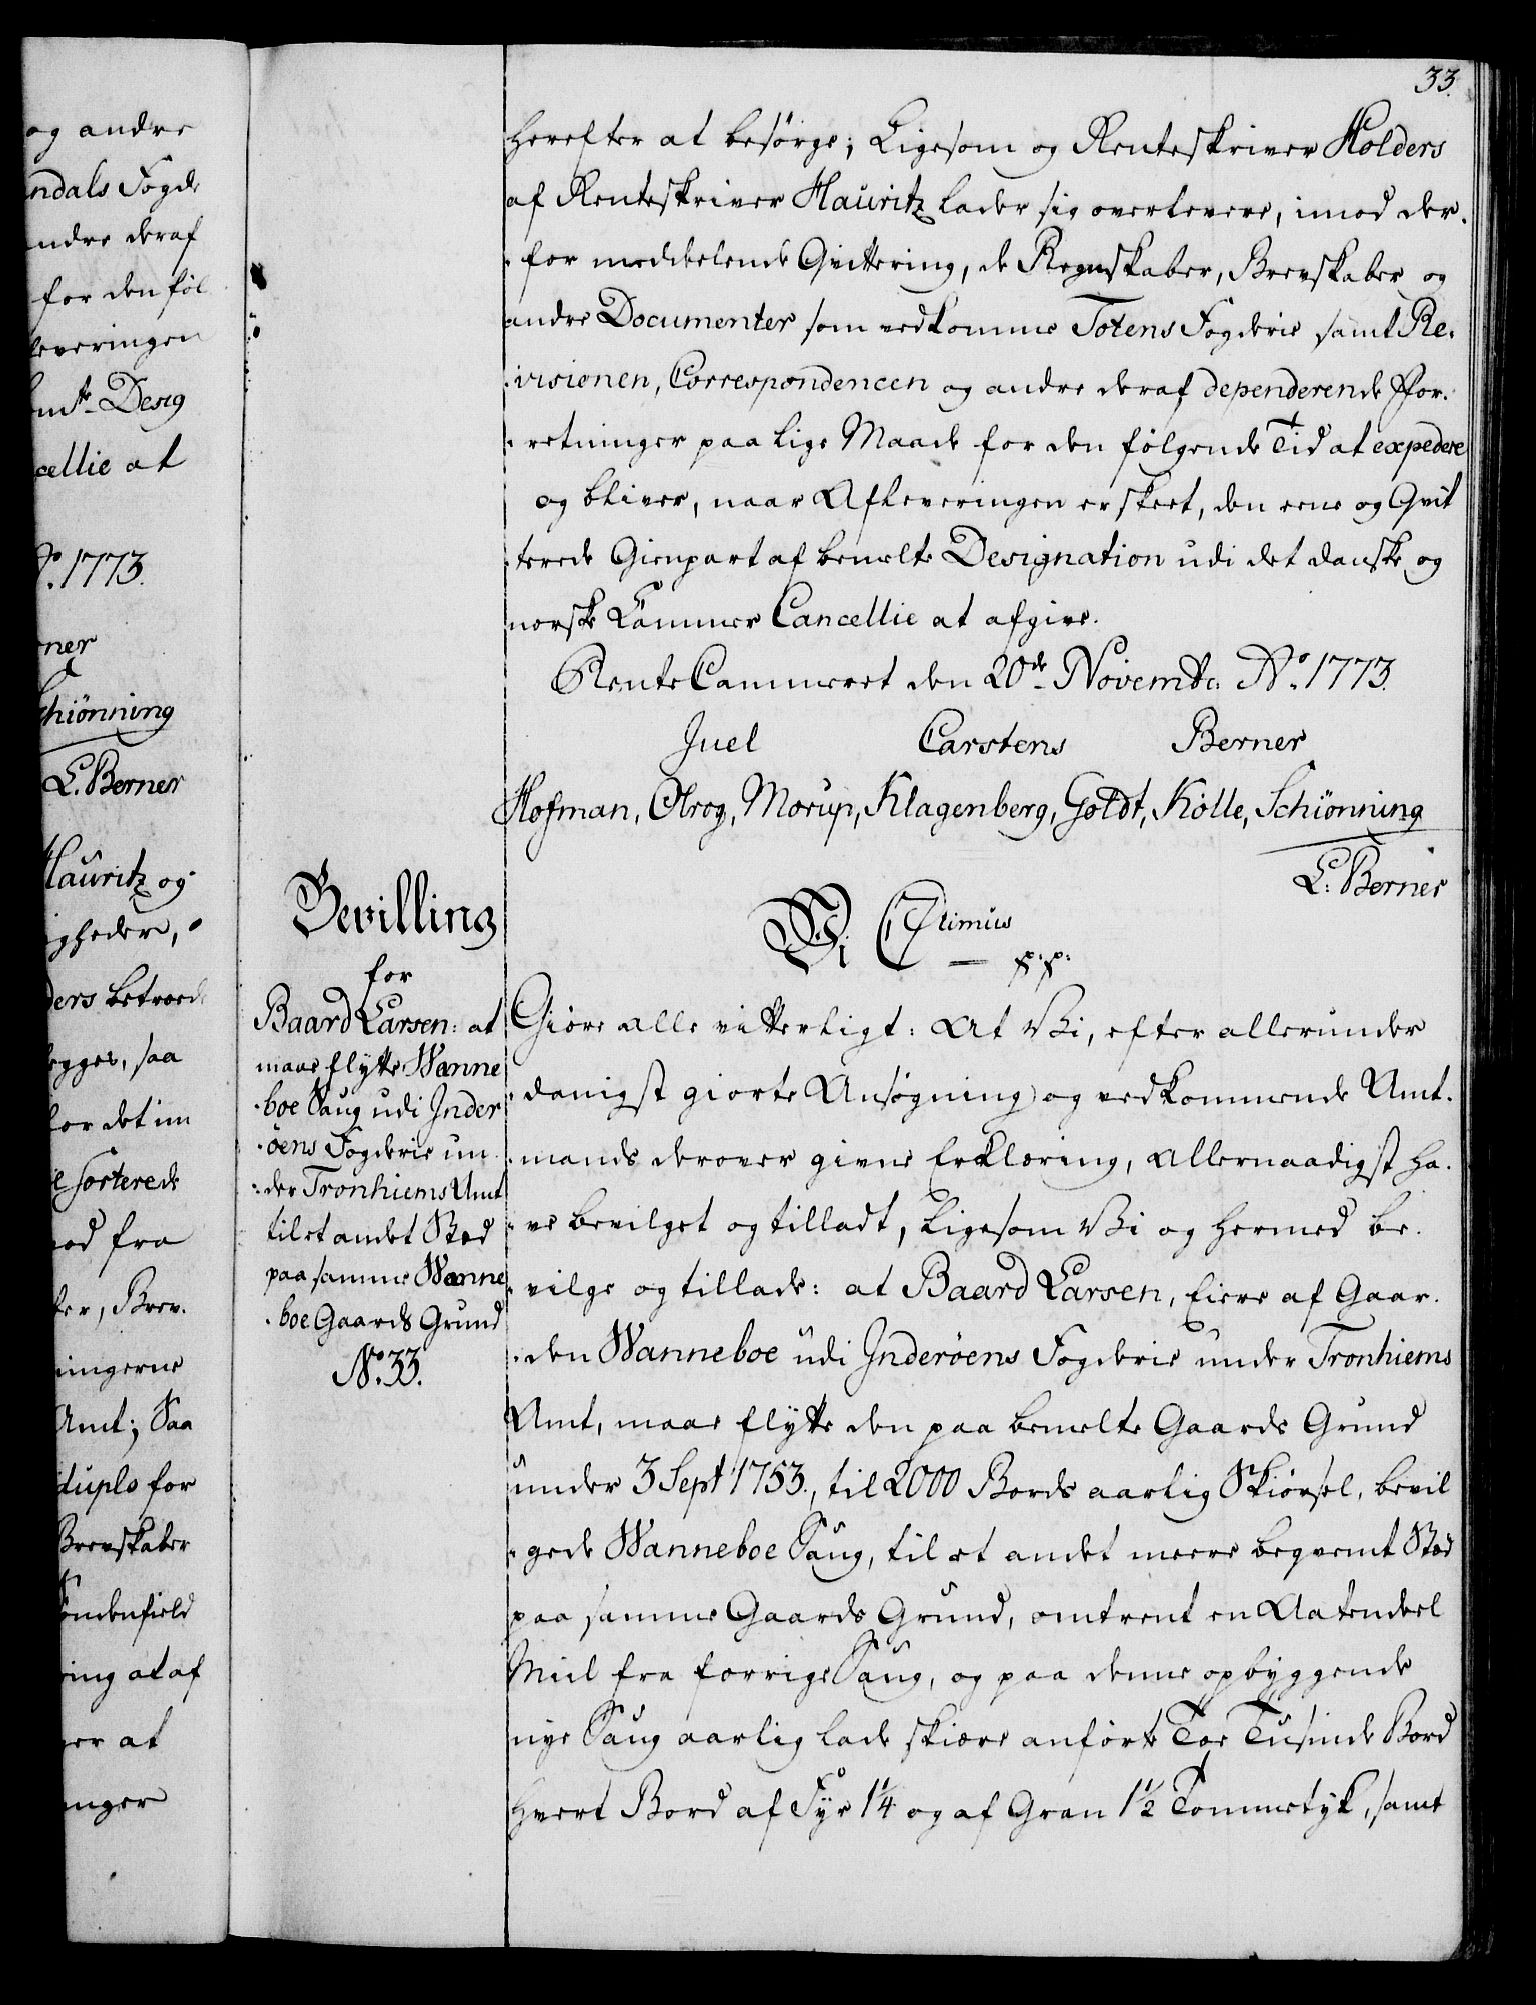 33.
og andre
ndals Fogde
ndre deraf
for den föl
leveringen
Desig
cellie at
No. 1773.
rner
Schiönning
L. Berner
Hauritz og
igheder,
ders betroed
egges, saa
for det im
sorterede
mod fra
ter, Brev.
ningerne
Amt; Saa
duplo for
Brevskaber
öndenfield
ring at af
ger at
inger
herefter at besörge; Ligesom og Renteskriver Holders
af Renteskriver Hauritz lader sig overlevere, imod der.
for meddelende Qvittering, de Regnskaber, Brevskaber og
andre Documenter som vedkomme Totens Fogderie samt Re.
visionen, Correspondencen og andre deraf dependerende For.
retninger paa lige Maade for den fölgende Tid at expedere
og bliver, naar Afleveringen er skeet, den eene og Qvit
terede Gienpart af bemelte Designation udi det danske og
norske Kammer Cancellie at afgive.
RenteCammeret den 20de Novembr. Ao. 1773.
Juel Carstens Berner
Hofman, Olrog, Morup, Klagenberg, Goldt, Kölle, Schiönning
L: Berner
Bevilling
for
Baard Larsen: at
maae flytte Wanne
boe Saug udi Inder
öens Fogderie un
der Tronhiems Amt
til et andet Stæd
paa samme Wanne
boe Gaards Grund
No. 33.
Vi C 7timus
p. p.
Giöre alle vitterligt: At Vi, efter allerunder
danigst giorte Ansögning og vedkommende Amt.
mands derover givne Erklæring, allernaadigst ha.
ve bevilget og tilladt, ligesom Vi og hermed be.
vilge og tillade: at Baard Larsen, Eiere af Gaar.
den Wanneboe udi Inderöens Fogderie under Tronhiems
Amt, maae flytte den paa bemelte Gaards Grund
under 3 Sept 1753., til 2000 Bords aarlig Skiörsel, bevil
gede Wanneboe Saug, til et andet meere beqvemt Stæd
paa samme Gaards Grund, omtrent en Aatendeel
Miil fra forrige Saug, og paa denne opbyggende
nye Saug aarlig lade skiære anförte Toe Tusinde Bord
hvert Bord af Fyr 1¼ og af Gran 1½ Tommetyk, samt